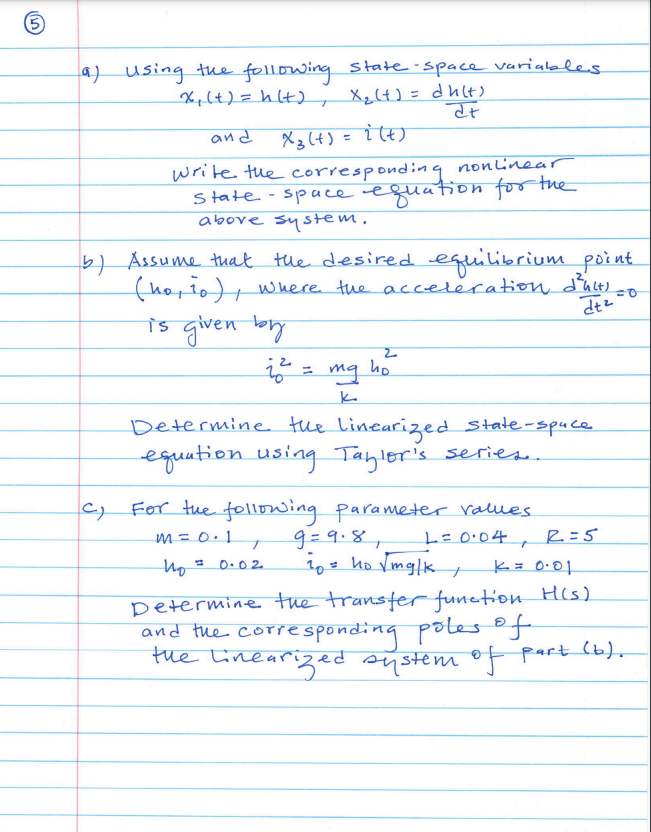 5
a) Using the following state-space variables
x₁(t) = h(t) , x₂(t) = dh(t)/dt
and x₃(t) = i(t)
Write the corresponding nonlinear
state-space equation for the
above system.
b) Assume that the desired equilibrium point
(h₀, i₀), where the acceleration d²h(t)/dt² = 0
is given by
i₀² = mg/k h₀²
Determine the linearized state-space
equation using Taylor's series.
c) For the following parameter values
m = 0.1 , g = 9.8 , L = 0.04 , R = 5
h₀ = 0.02 i₀ = h₀ √mg/k , k = 0.01
Determine the transfer function H(s)
and the corresponding poles of
the linearized system of part (b).